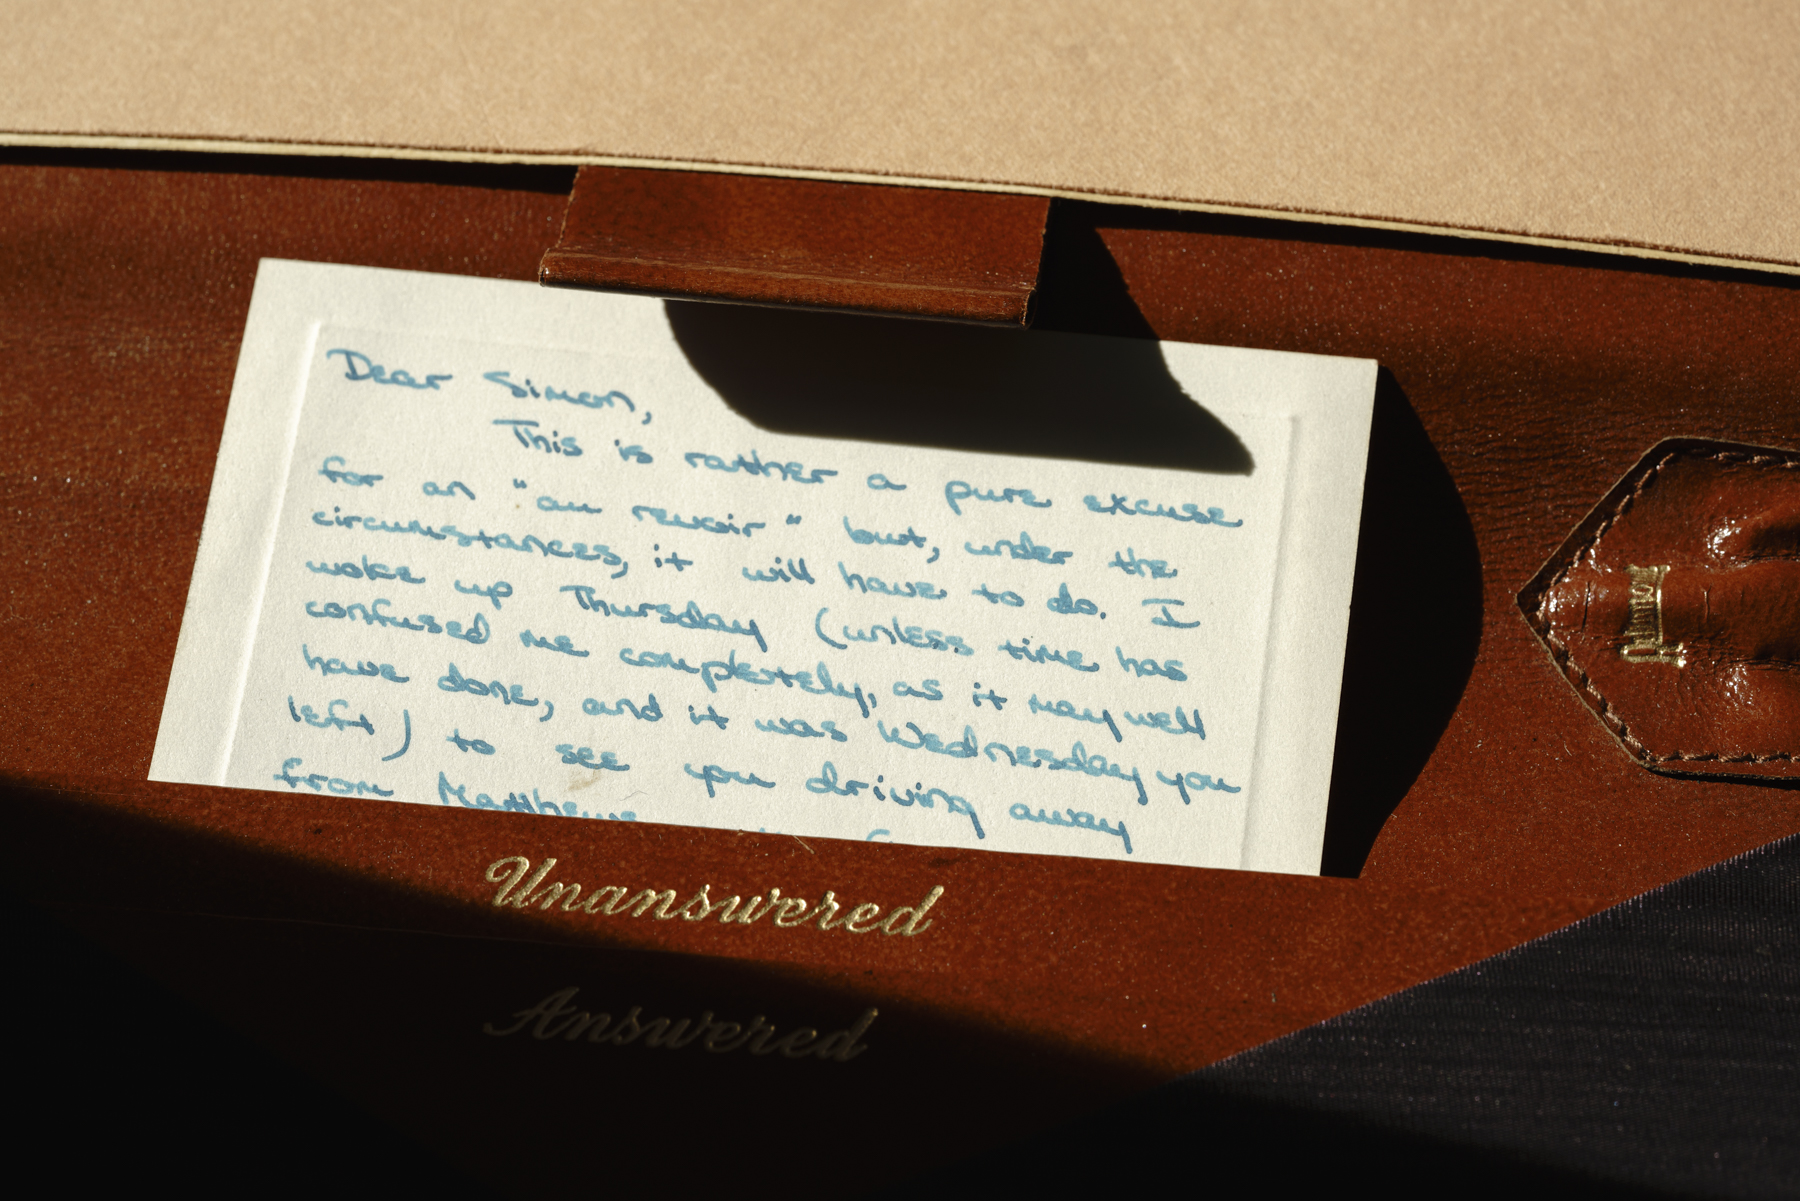 Dear Simon,
This is rather a pure excuse
for an "au revoir" but, under the
circumstances, it will have to do. I
woke up Thursday (unless time has
confused me completely, as it may well
have done, and it was Wednesday you
left) to see you driving away
from Matthews
Unanswered
Answered